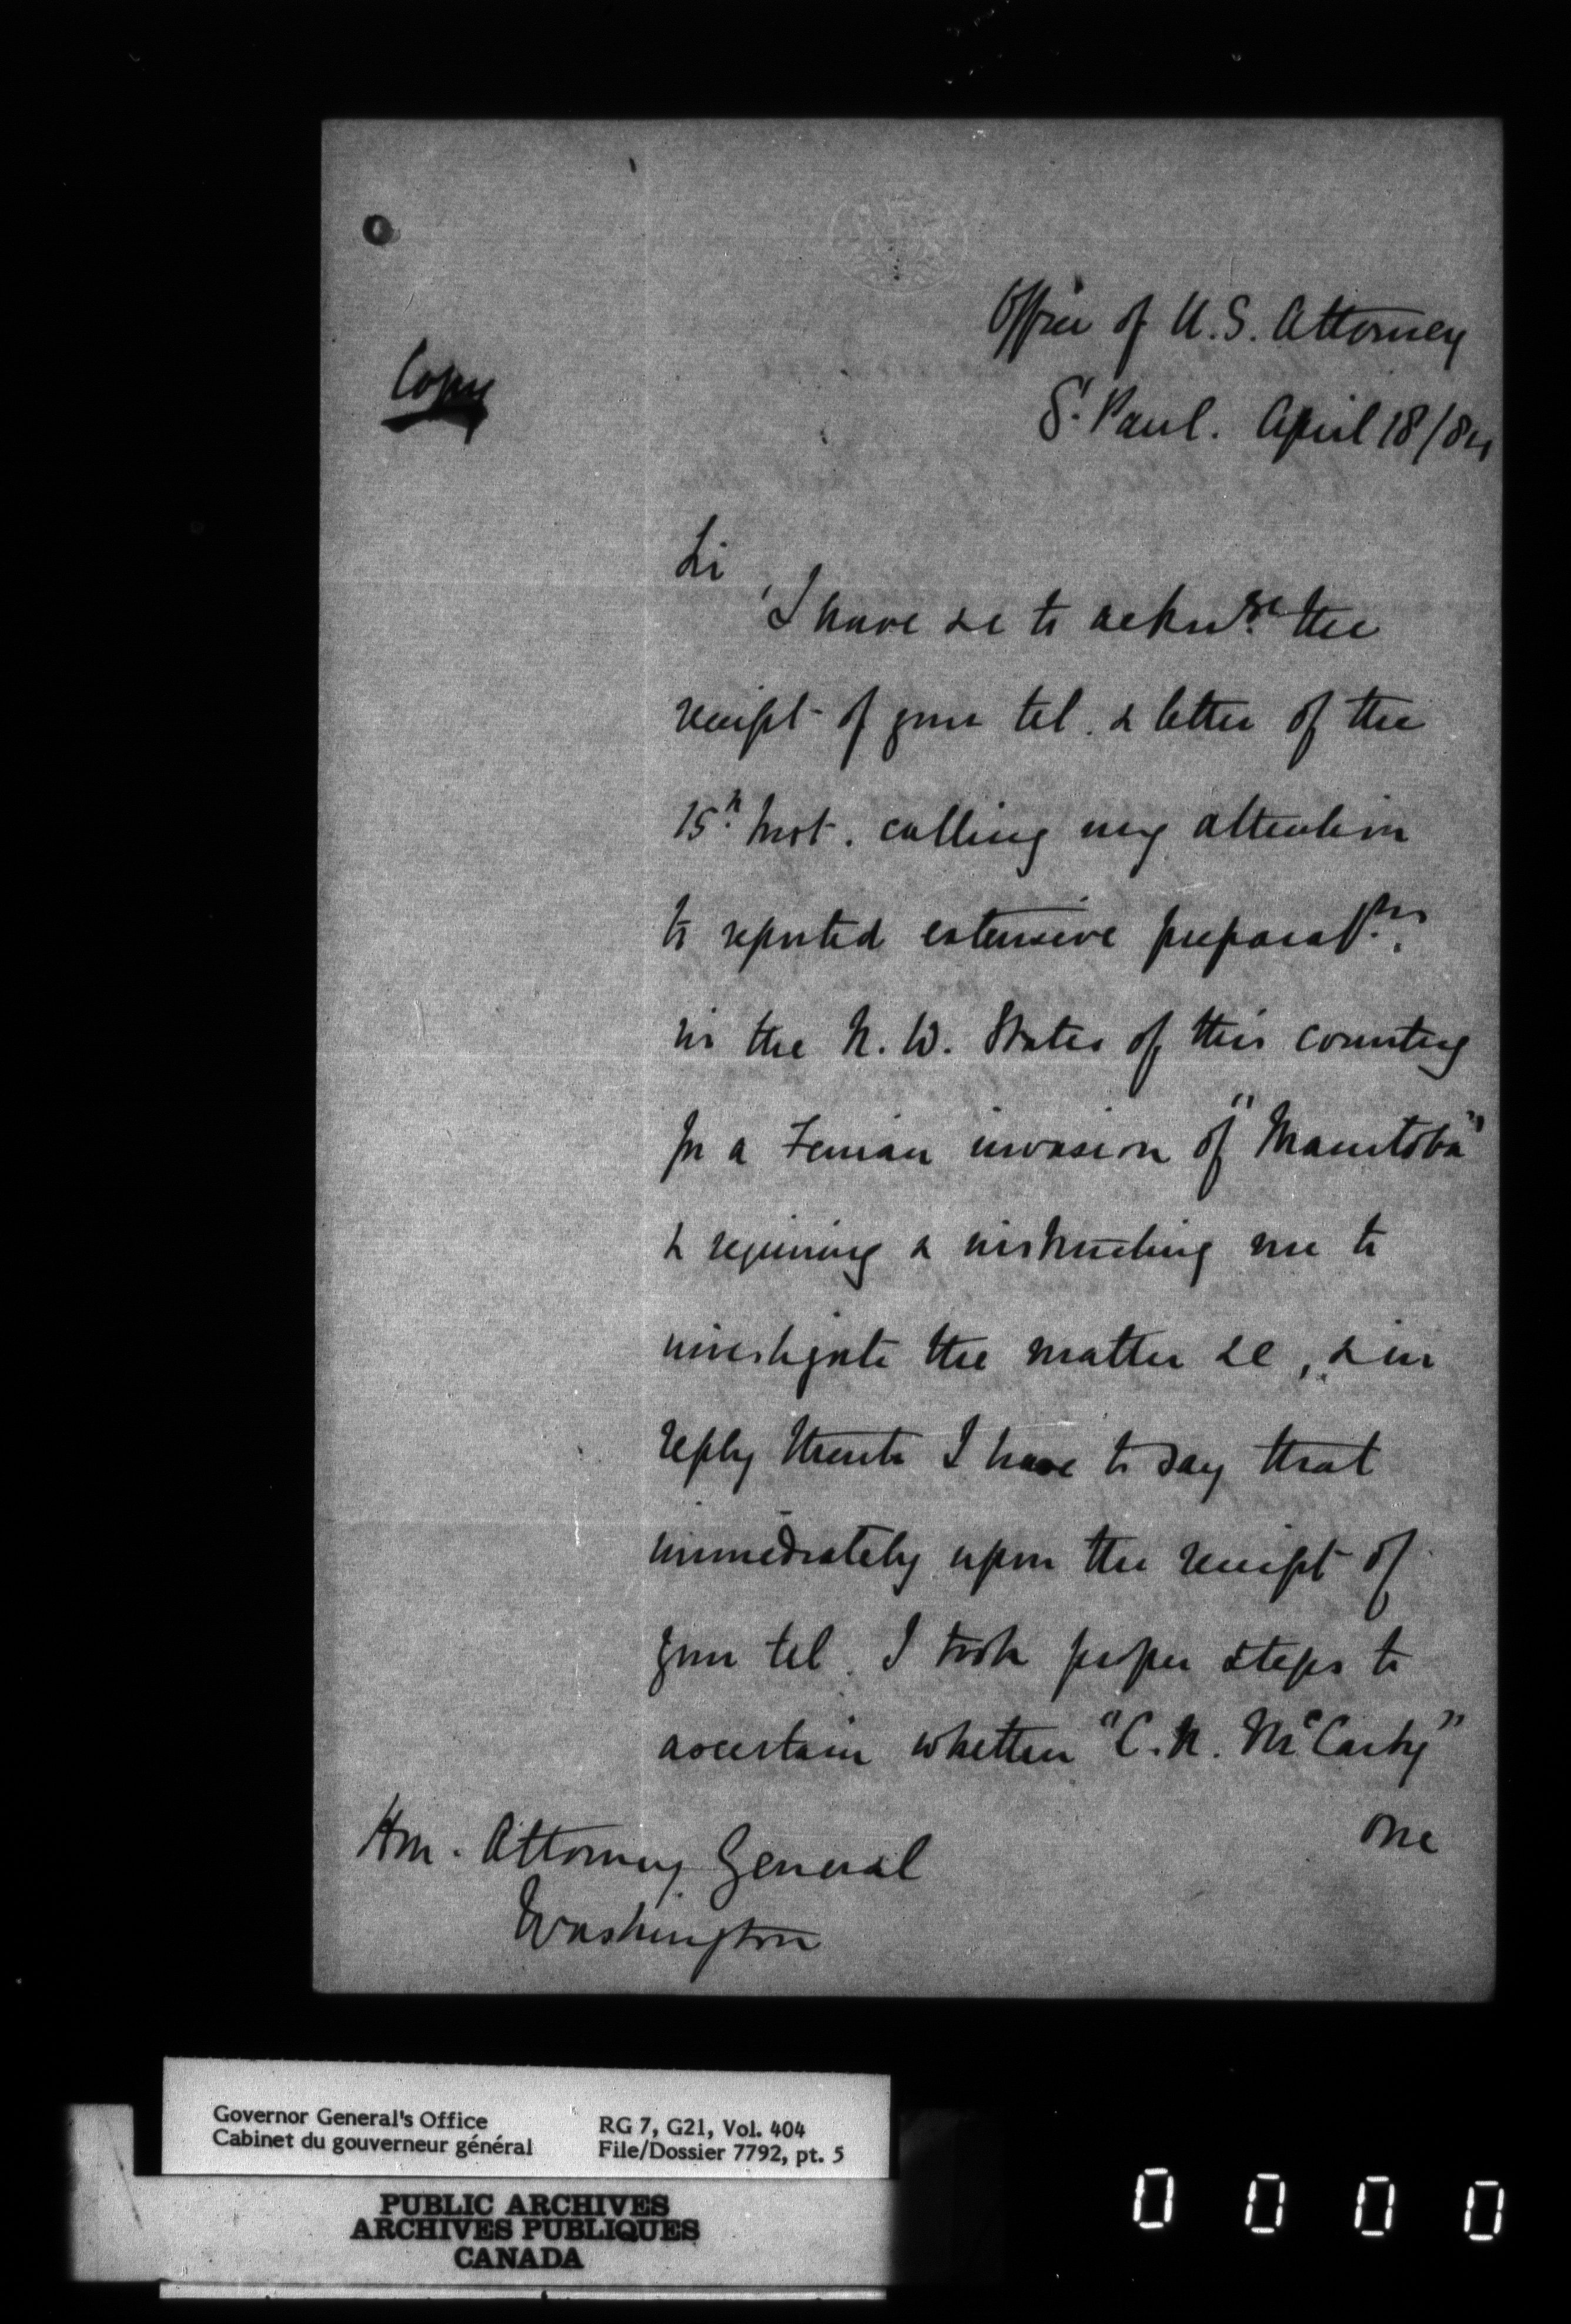 Office of U.S. Attorney
Copy
St. Paul. April 18/84
Sir
I have &c to acknge. the
receipt of your tel. & letter of the
15th Inst. calling my attention
to reported extensive preparatns.
in the N.W. States of this country
for a Fenian invasion of "Manitoba"
& requiring & instructing me to
investigate the matter &c, & in
reply thereto I have to say that
immediately upon the receipt of
your tel. I took proper steps to
ascertain whether "C.N. McCarty"
one
Hon. Attorney General
Washington
Governor General's Office
Cabinet du gouverneur général
RG 7, G21, Vol. 404
File/Dossier 7792, pt. 5
PUBLIC ARCHIVES
ARCHIVES PUBLIQUES
CANADA
0 0 0 0